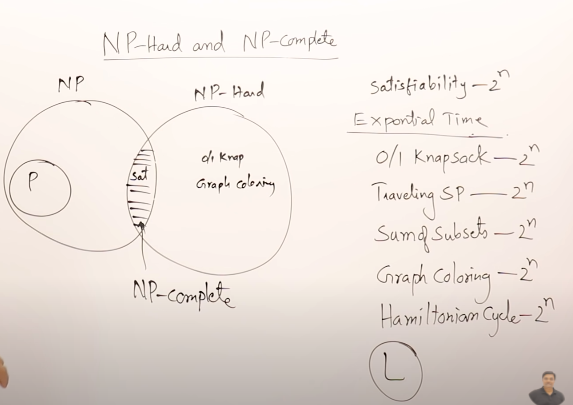 NP-Hard and NP-Complete
NP
NP-Hard
P
Sat
0/1 Knap
Graph Coloring
NP-complete
Satisfiability - 2^n
Expontial Time
0/1 Knapsack - 2^n
Traveling SP - 2^n
Sum of Subsets - 2^n
Graph Coloring - 2^n
Hamiltonian Cycle - 2^n
L